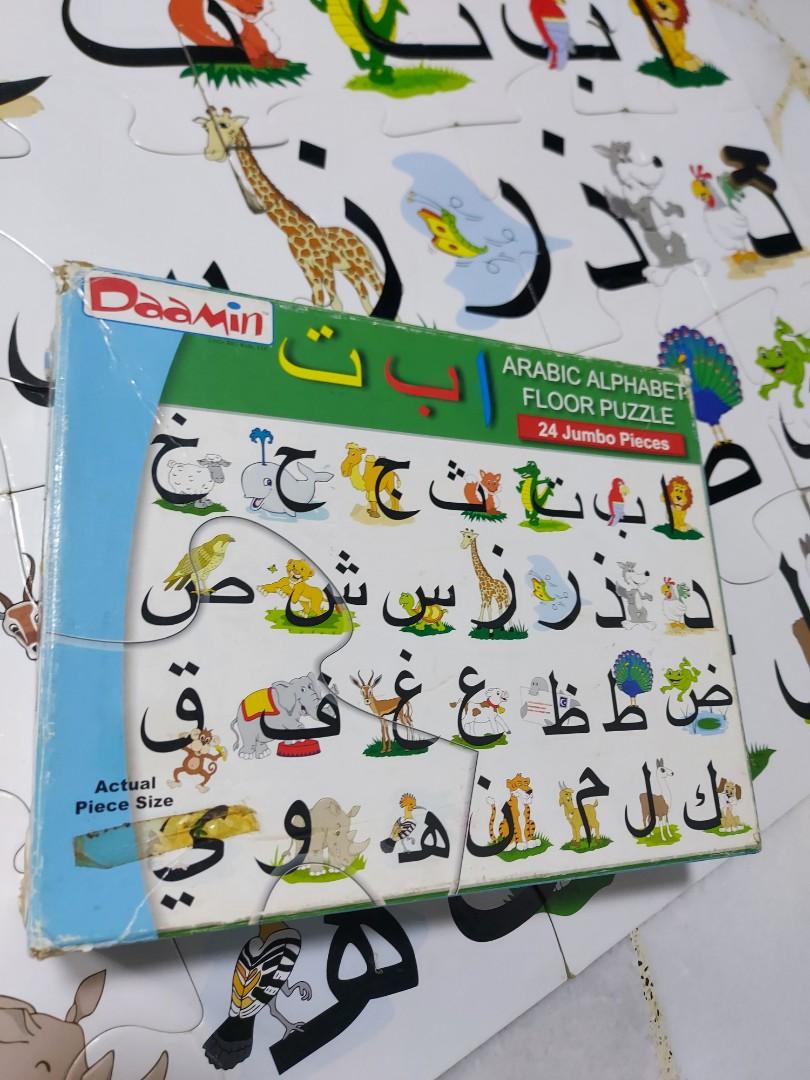 ا ب ت
د ذ ر ز
DaaMin
ا ب ت
ARABIC ALPHABET
FLOOR PUZZLE
24 Jumbo Pieces
ا ب ت ث ج ح خ
د ذ ر ز س ش ص
ض ط ظ ع غ ف ق
ك ل م ن ه و ي
Actual
Piece Size
ه